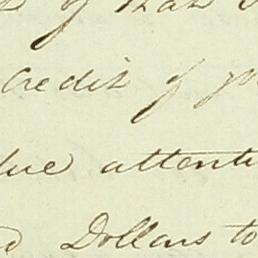 of that
Credit of
due attenti
Dollars to